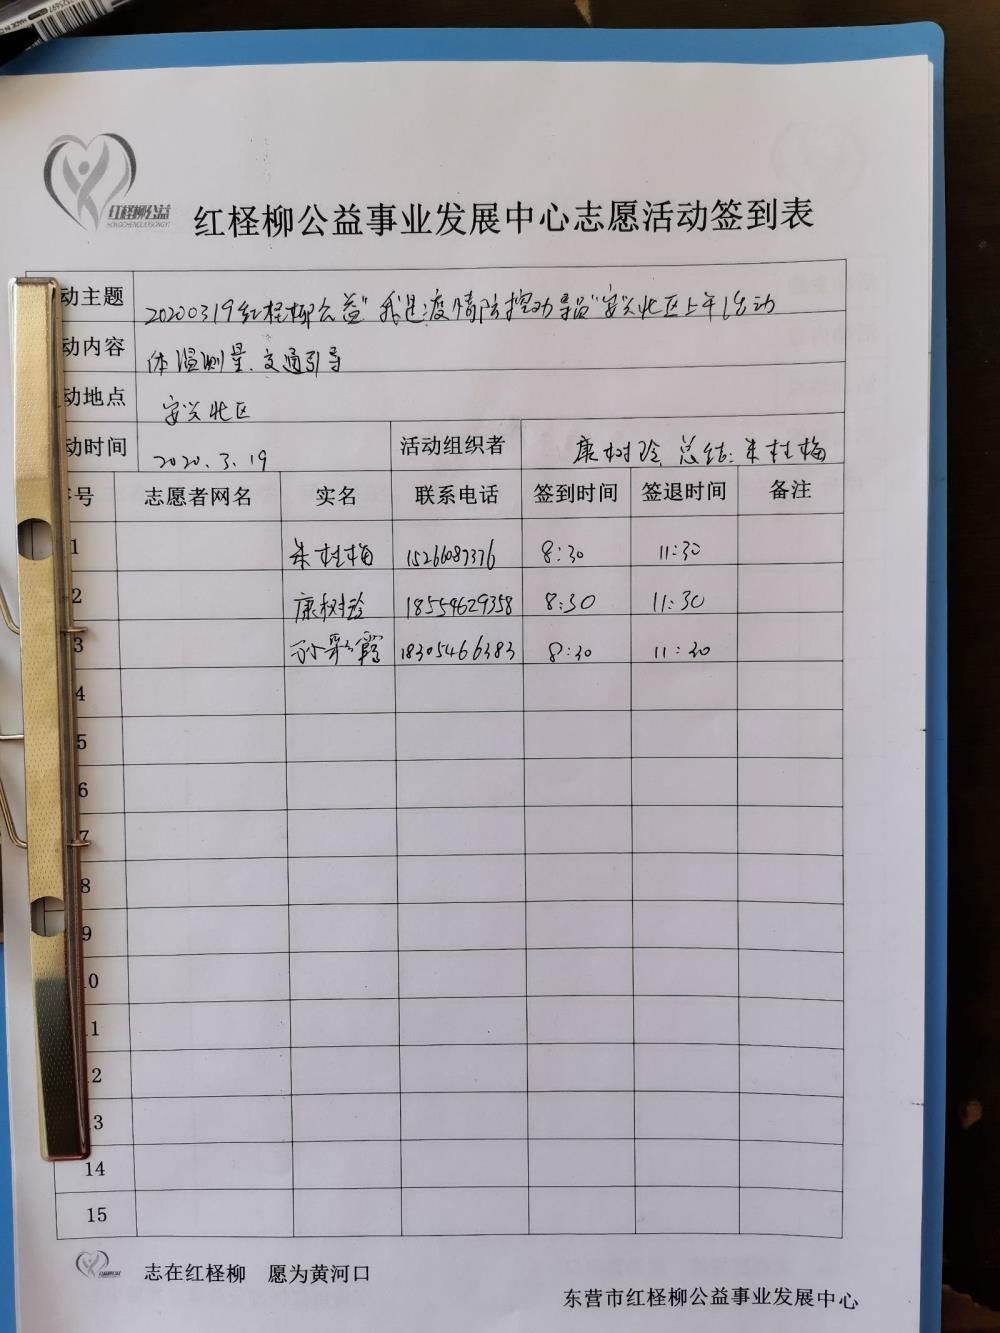 红柽柳公益
HONGCHENGLIUGONGYI
红柽柳公益事业发展中心志愿活动签到表
动主题 20200319红柽柳公益"我是疫情防控劝导员"安兴北区上午活动
动内容 体温测量、交通引导
动地点 安兴北区
动时间 2020.3.19 活动组织者 康树玲 总结:朱桂梅
序号 志愿者网名 实名 联系电话 签到时间 签退时间 备注
1 朱桂梅 15266087376 8:30 11:30
2 康树玲 18554629358 8:30 11:30
3 孙翠霞 18305466383 8:30 11:30
4
5
6
7
8
9
10
11
12
13
14
15
志在红柽柳 愿为黄河口
东营市红柽柳公益事业发展中心